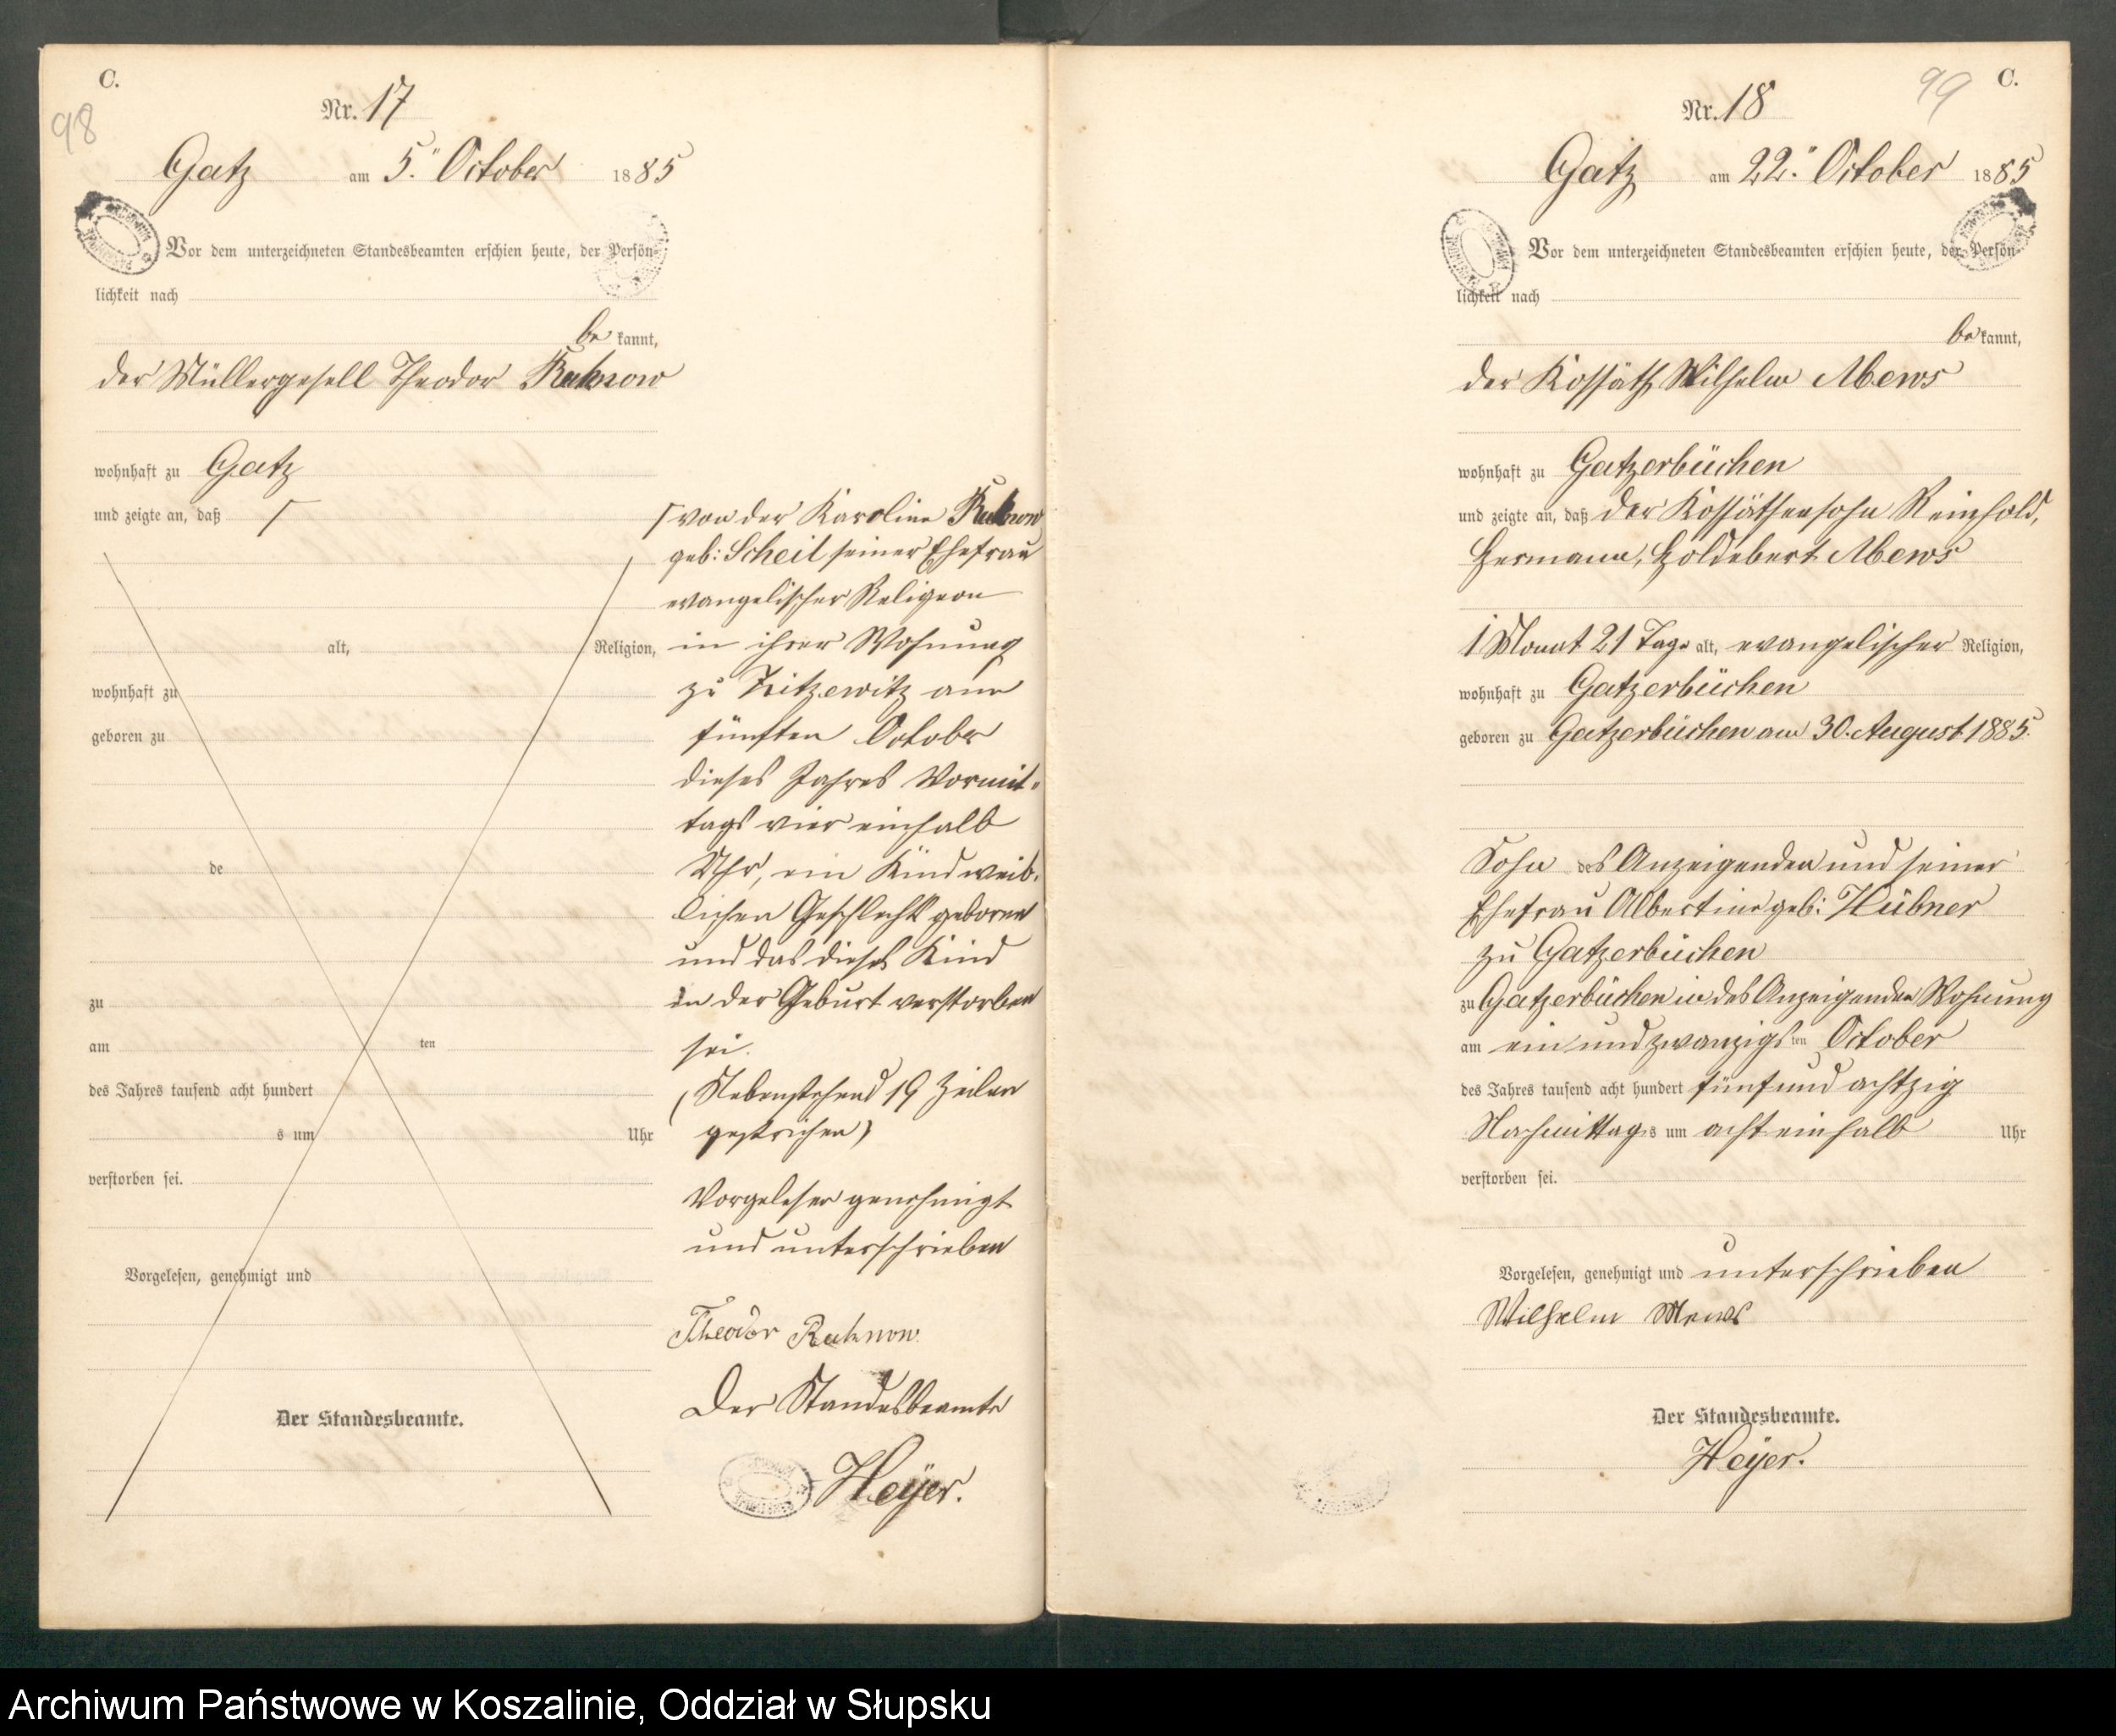 C.
98
Nr. 17
Gatz am 5ten October 1885
Vor dem unterzeichneten Standesbeamten erschien heute, der Persön-
lichkeit nach
be kannt,
der Müllergesell Theodor Ruhnow
wohnhaft zu Gatz
und zeigte an, daß
alt, Religion,
wohnhaft zu
geboren zu
de
zu
am ten
des Jahres tausend acht hundert
s um Uhr
verstorben sei.
Vorgelesen, genehmigt und
Der Standesbeamte.
von der Karoline Ruhnow
geb: Scheil seiner Ehefrau
evangelischer Religion
in ihrer Wohnung
zu Zitzewitz am
fünften October
dieses Jahres Vormit-
tags vier einhalb
Uhr, ein Kind weib-
lichen Geschlechts geboren
und das dieses Kind
in der Geburt verstorben
sei.
(Nebenstehend 19 Zeilen
gestrichen)
Vorgelesen genehmigt
und unterschrieben
Theodor Ruhnow.
Der Standesbeamte
Heyer.
99
C.
Nr. 18
Gatz am 22ten October 1885
Vor dem unterzeichneten Standesbeamten erschien heute, der Persön-
lichkeit nach
be kannt,
der Kossäth Wilhelm Mews
wohnhaft zu Gatzerbüchen
und zeigte an, daß der Kossäthensohn Reinhold,
Hermann, Holdebert Mews
1 Monat 21 Tage alt, evangelischer Religion,
wohnhaft zu Gatzerbüchen
geboren zu Gatzerbüchen am 30. August 1885.
Sohn des Anzeigenden und seiner
Ehefrau Albertine geb: Hübner
zu Gatzerbüchen
zu Gatzerbüchen in des Anzeigenden Wohnung
am ein und zwanzigsten October
des Jahres tausend acht hundert fünf und achtzig
Nachmittags um acht einhalb Uhr
verstorben sei.
Vorgelesen, genehmigt und unterschrieben
Wilhelm Mews
Der Standesbeamte.
Heyer.
Archiwum Państwowe w Koszalinie, Oddział w Słupsku